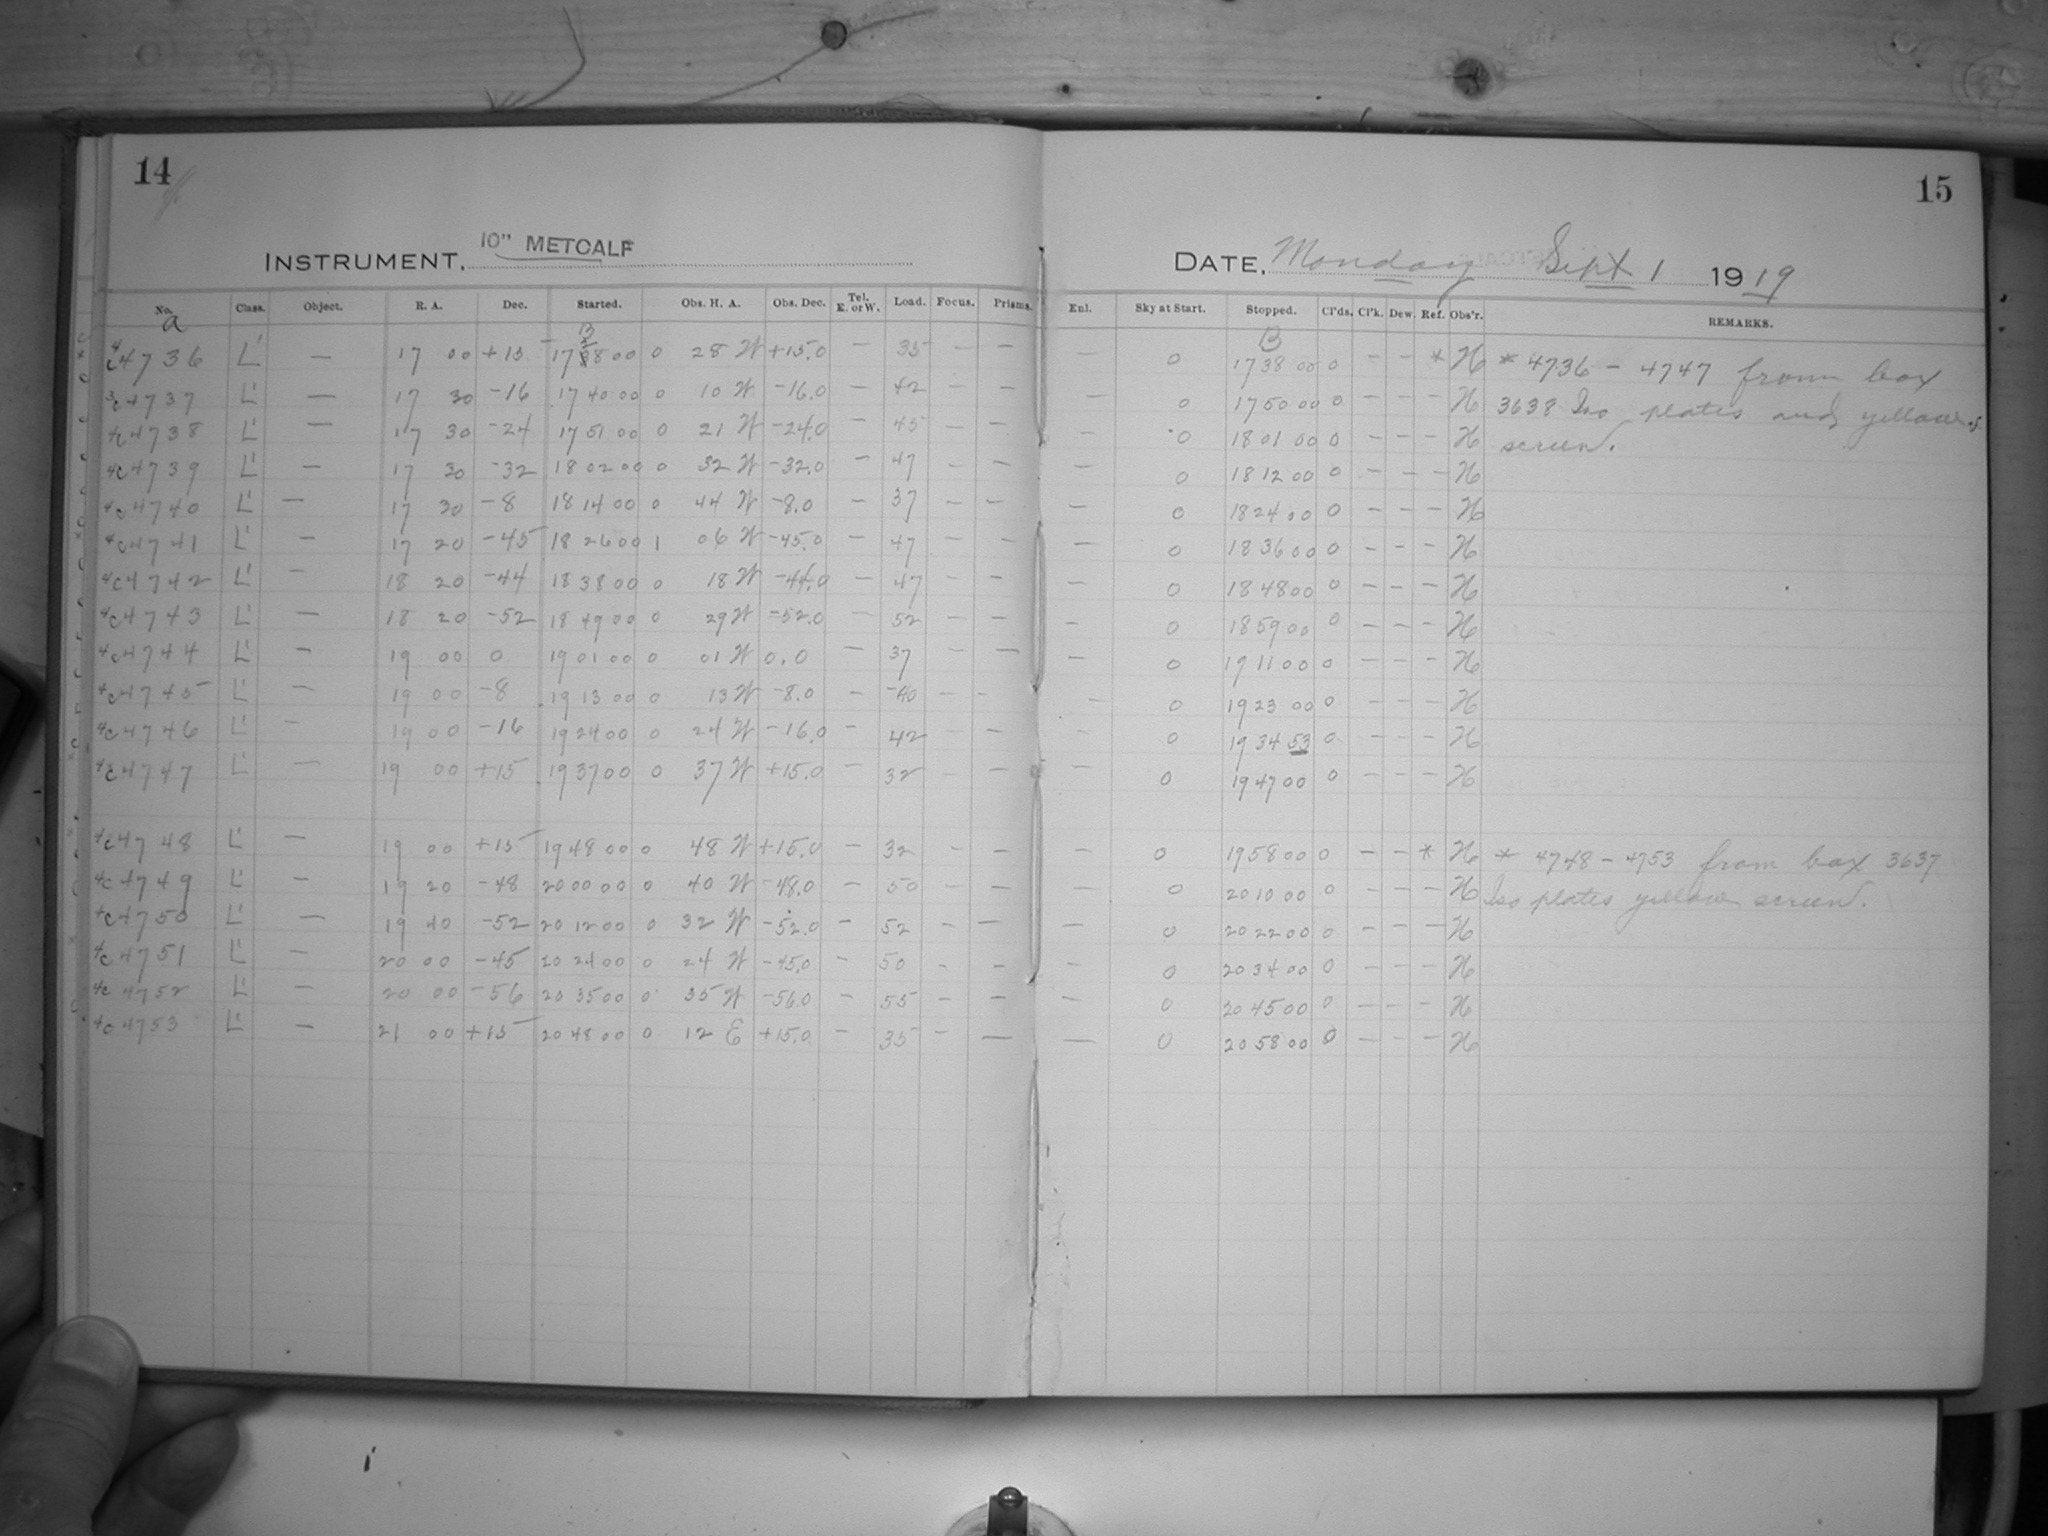 14
15
INSTRUMENT. 10" METCALF
DATE, Monday Sept 1 1919
No. Class. Object. R. A. Dec. Started. Obs. H. A. Obs. Dec. Tel. E. or W. Load. Focus. Prisms. Enl. Sky at Start. Stopped. Cl'ds. Cl'k. Dew. Ref. Obs'r. REMARKS.
a B
4c4736 L' — 17 00 +15 17 28 00 0 28 W +15.0 — 35 — — — 0 17 38 00 0 — — * H * 4736 - 4747 from box
4c4737 L' — 17 30 -16 17 40 00 0 10 W -16.0 — 42 — — — 0 17 50 00 0 — — — H 3638 Iso plates and yellow
4c4738 L' — 17 30 -24 17 51 00 0 21 W -24.0 — 45 — — — 0 18 01 00 0 — — — H screen.
4c4739 L' — 17 30 -32 18 02 00 0 32 W -32.0 — 47 — — — 0 18 12 00 0 — — — H
4c4740 L' — 17 30 -8 18 14 00 0 44 W -8.0 — 37 — — — 0 18 24 00 0 — — — H
4c4741 L' — 17 20 -45 18 26 00 1 06 W -45.0 — 47 — — — 0 18 36 00 0 — — — H
4c4742 L' — 18 20 -44 18 38 00 0 18 W -44.0 — 47 — — — 0 18 48 00 0 — — — H
4c4743 L' — 18 20 -52 18 49 00 0 29 W -52.0 — 52 — — — 0 18 59 00 0 — — — H
4c4744 L' — 19 00 0 19 01 00 0 01 W 0.0 — 37 — — — 0 19 11 00 0 — — — H
4c4745 L' — 19 00 -8 19 13 00 0 13 W -8.0 — 40 — — — 0 19 23 00 0 — — — H
4c4746 L' — 19 00 -16 19 24 00 0 24 W -16.0 — 42 — — — 0 19 34 53 0 — — — H
4c4747 L' — 19 00 +15 19 37 00 0 37 W +15.0 — 32 — — — 0 19 47 00 0 — — — H
4c4748 L' — 19 00 +15 19 48 00 0 48 W +15.0 — 32 — — — 0 19 58 00 0 — — * H * 4748 - 4753 from box 3637
4c4749 L' — 19 20 -48 20 00 00 0 40 W -48.0 — 50 — — — 0 20 10 00 0 — — — H Iso plates yellow screen.
4c4750 L' — 19 40 -52 20 12 00 0 32 W -52.0 — 52 — — — 0 20 22 00 0 — — — H
4c4751 L' — 20 00 -45 20 24 00 0 24 W -45.0 — 50 — — — 0 20 34 00 0 — — — H
4c4752 L' — 20 00 -56 20 35 00 0 35 W -56.0 — 55 — — — 0 20 45 00 0 — — — H
4c4753 L' — 21 00 +15 20 48 00 0 12 E +15.0 — 35 — — — 0 20 58 00 0 — — — H